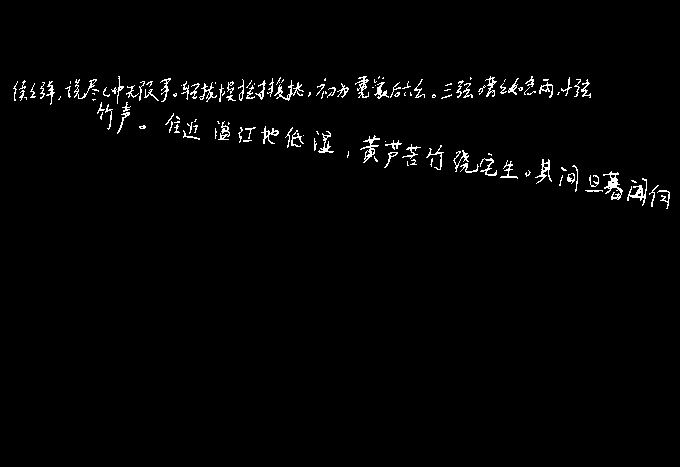 续续弹,说尽心中无限事。轻拢慢捻抹复挑,初为霓裳后六幺。大弦嘈嘈如急雨,小弦
竹声。住近湓江地低湿,黄芦苦竹绕宅生。其间旦暮闻何